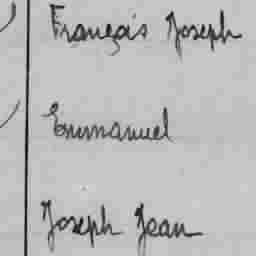 François Joseph
Emmanuel
Joseph Jean